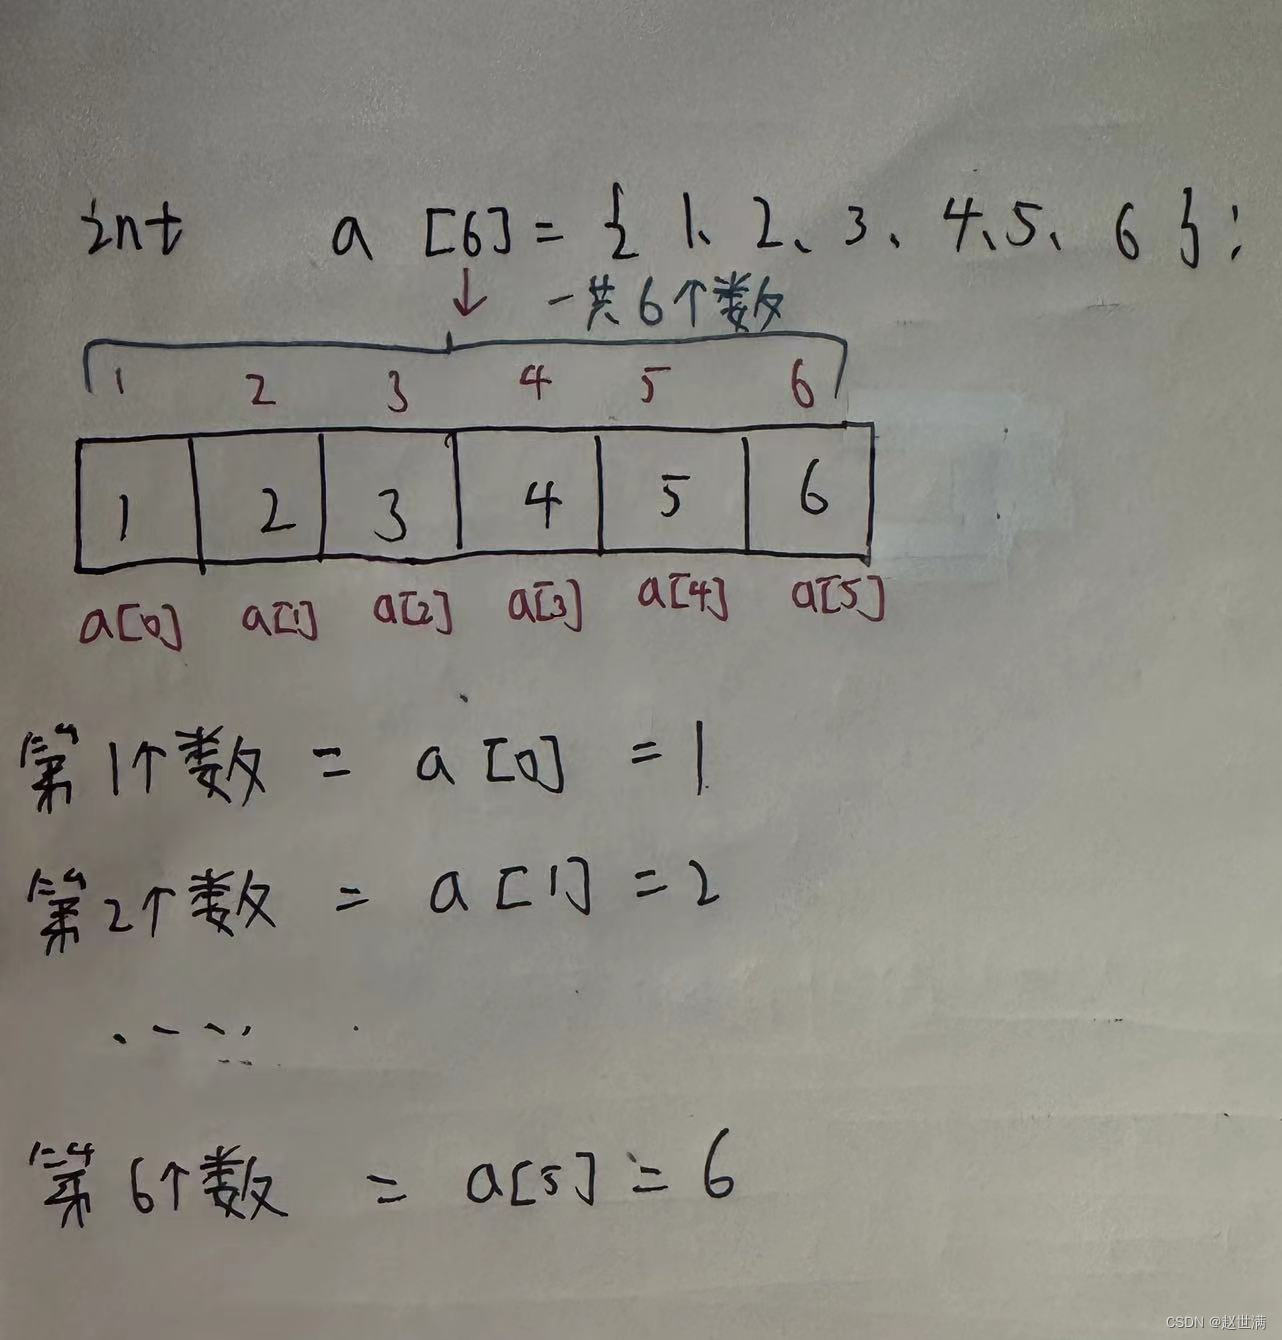 int a [6] = { 1、2、3、4、5、6 };
一共6个数
1 2 3 4 5 6
1 2 3 4 5 6
a[0] a[1] a[2] a[3] a[4] a[5]
第1个数 = a [0] = 1
第2个数 = a [1] = 2
......
第6个数 = a[5] = 6
CSDN @赵世满